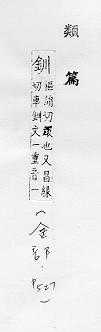 類篇
釧
樞絹切環也又昌緣
切車釧文一重音一
(金部, P527)